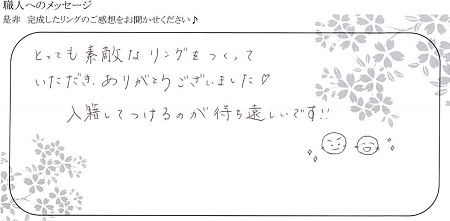 職人へのメッセージ
是非 完成したリングのご感想をお聞かせください♪
とっても素敵なリングをつくって
いただき、ありがとうございました♡
入籍してつけるのが待ち遠しいです!!